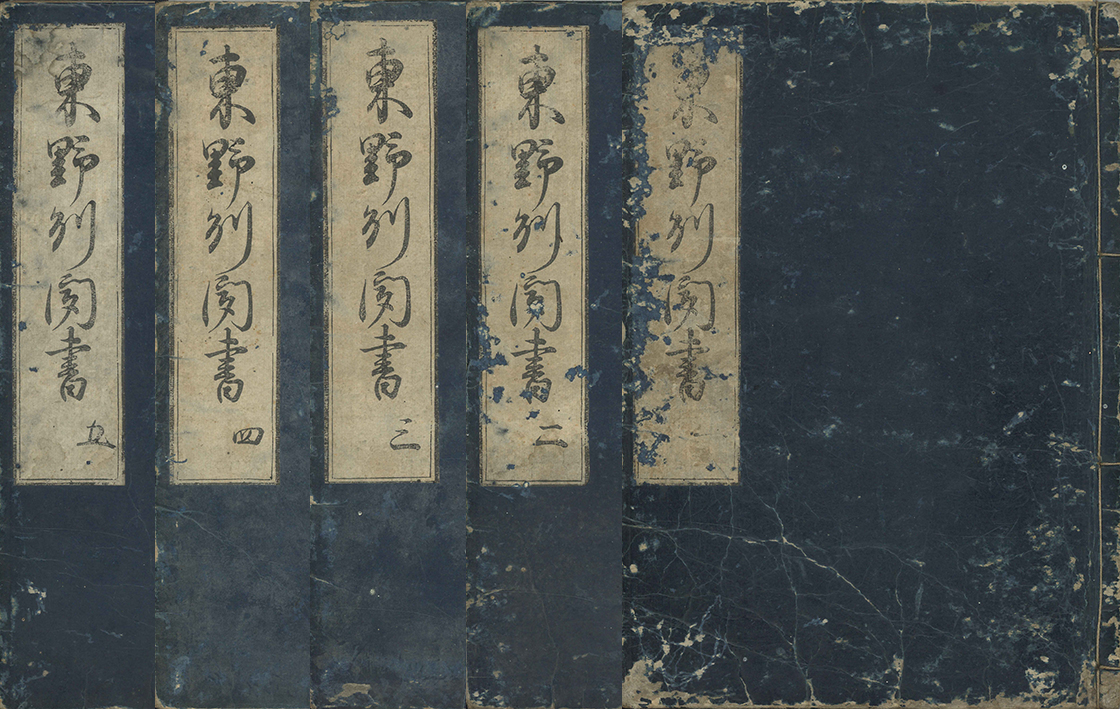 東野州聞書
東野州聞書 二
東野州聞書 三
東野州聞書 四
東野州聞書 五